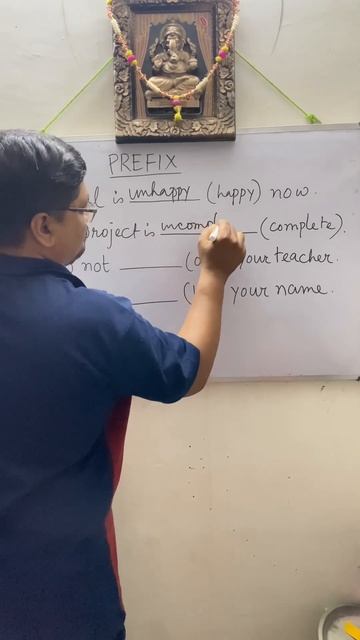 PREFIX
is unhappy (happy) now.
project is incompl (complete).
not ______ (o your teacher.
______ ( your name.